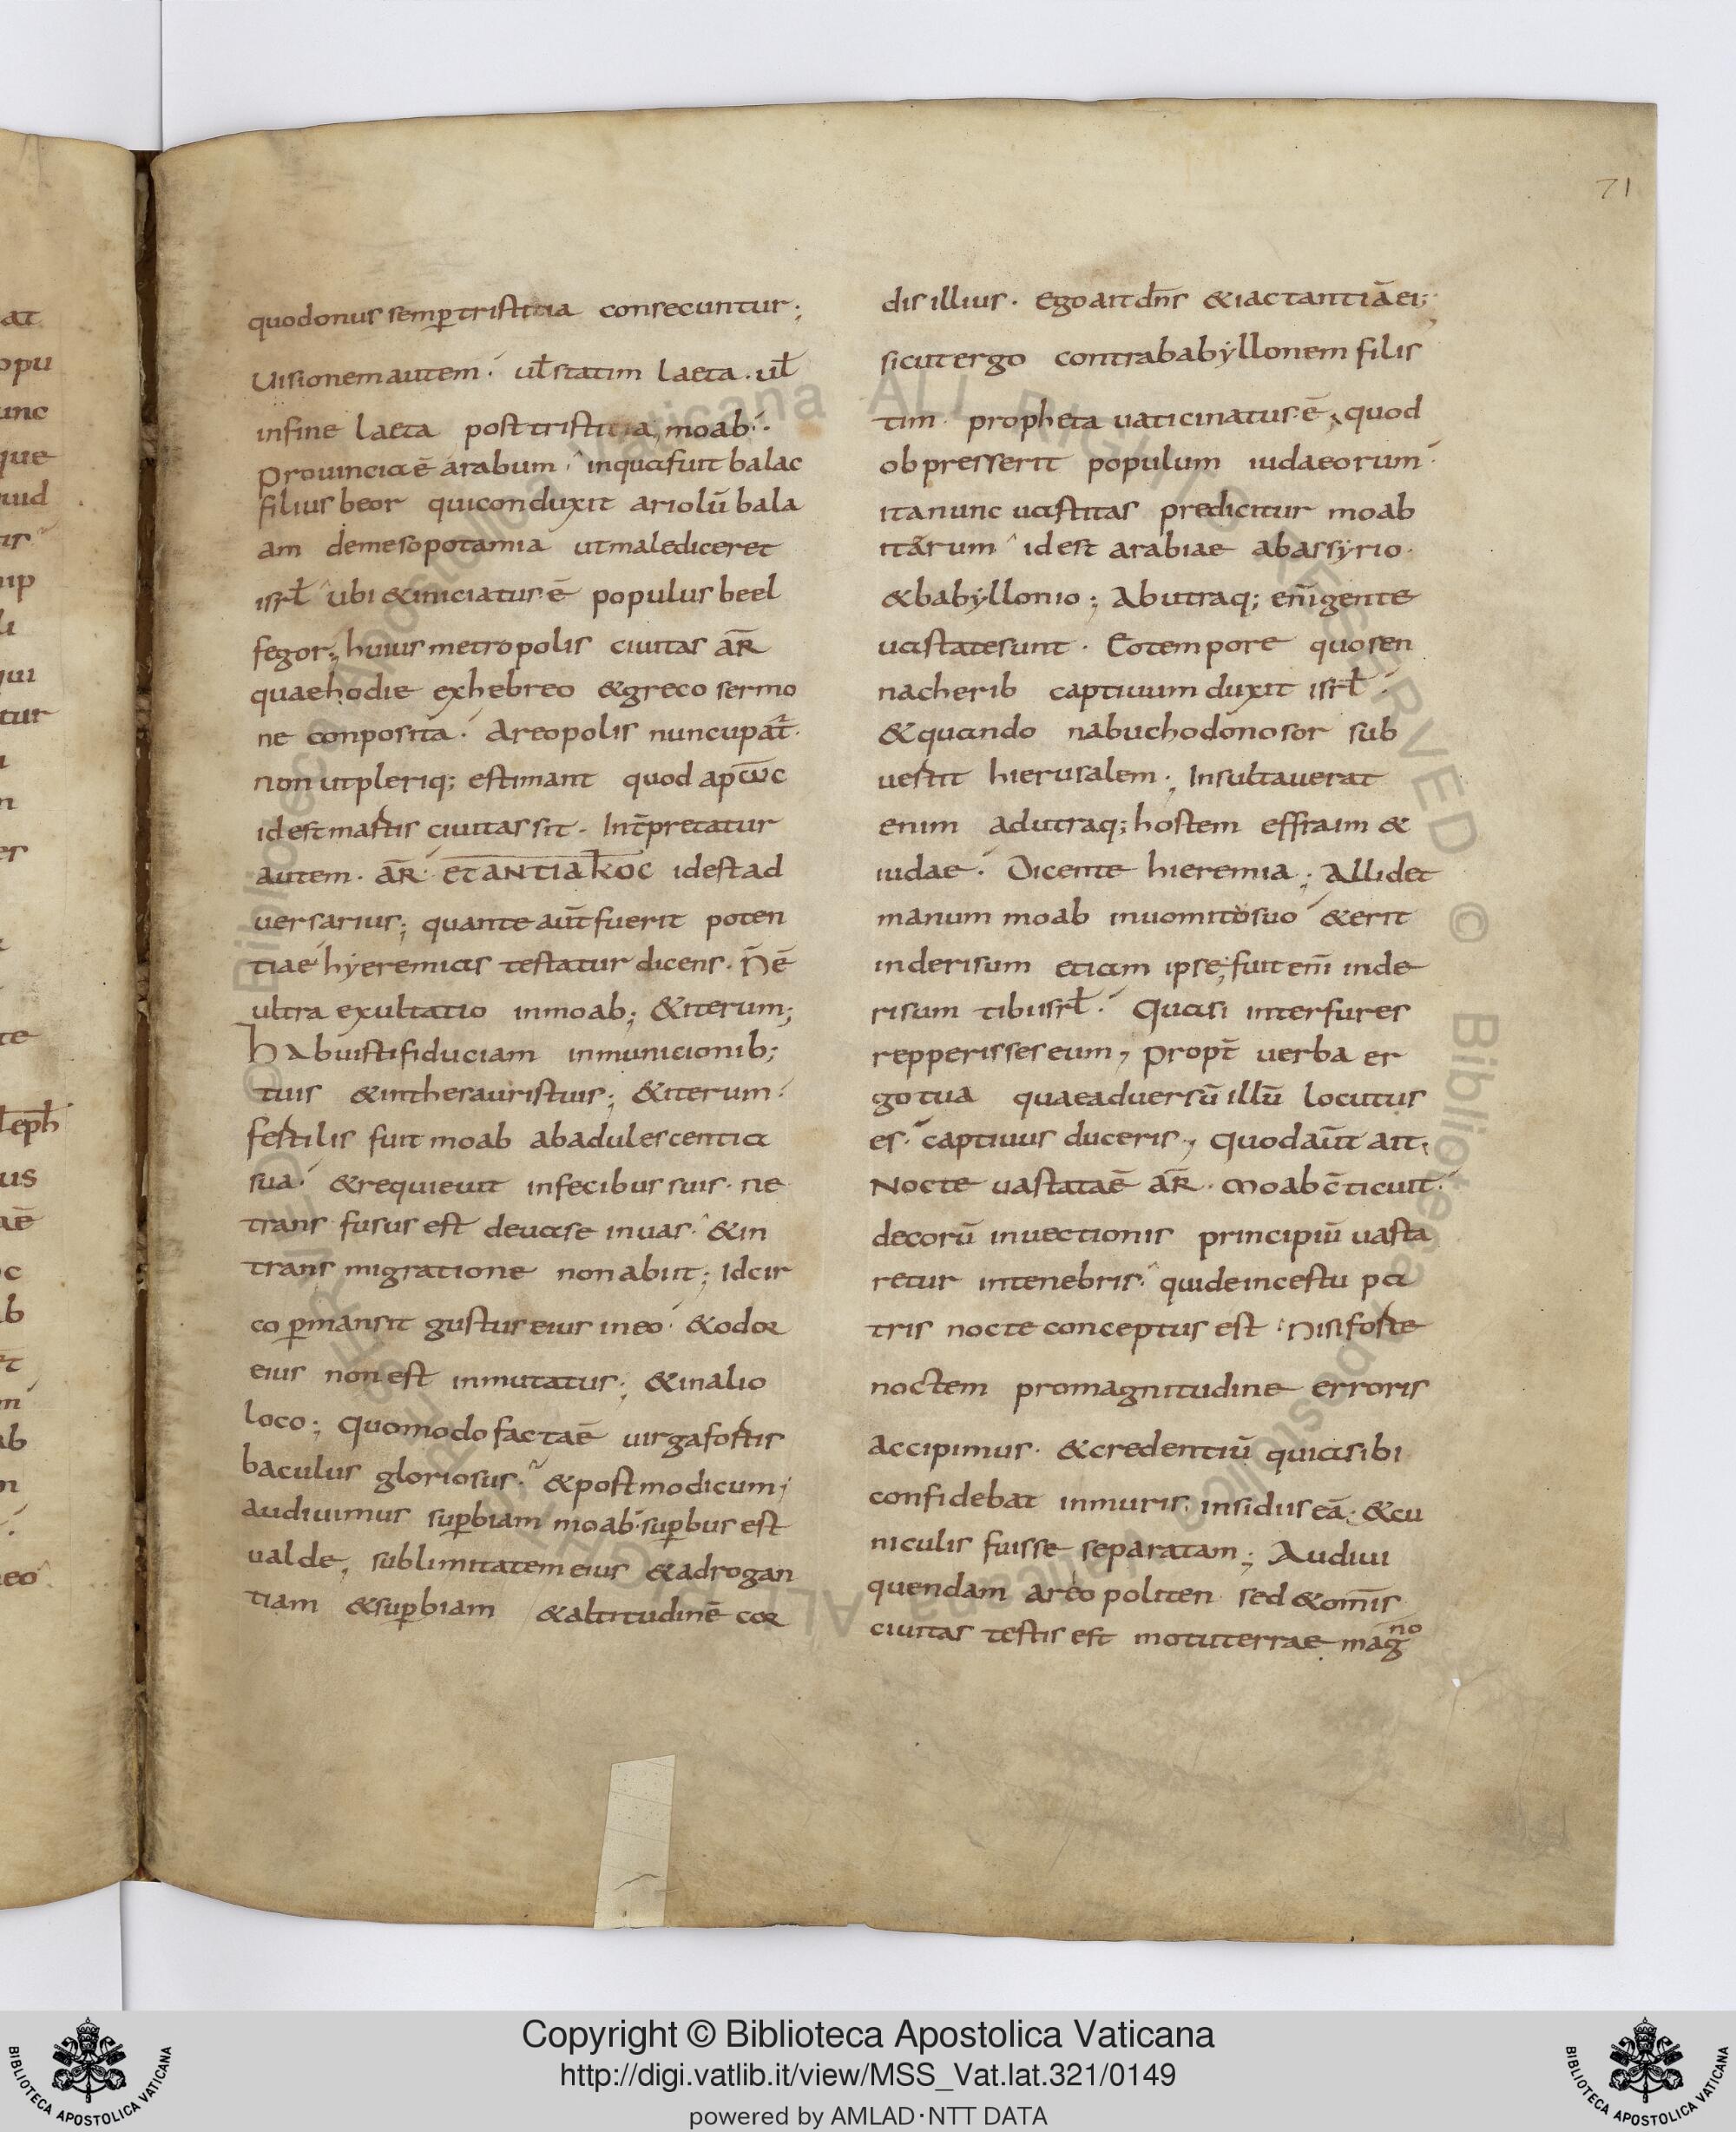 71
quodonus semp̄ tristitia consecuntur;
Uisionem autem. ul̄ statim laeta. ul̄
infine laeta post tristitia, moab.
Prouincia ē arabum. inqua fuit balac
filius beor qui conduxit ariolū bala
am demesopotamia ut malediceret
isrl̄ ubi & iniciatus ē populus beel
fegor; huius metropolis ciuitas ār
quae hodie exhebreo & greco sermo
ne conposita. Areopolis nuncupat̄.
non ut pleriq; estimant quod apωc
id est martis ciuitas sit. Int̄pretatur
autem. ār. ετ αντιαkος id est ad
uersarius; quante aut̄ fuerit poten
tiae hyeremias testatur dicens. N̄ ē
ultra exultatio inmoab; & iterum;
habuisti fiduciam inmunicionib;
tuis & inthesauris tuis; & iterum.
fertilis fuit moab abadulescentia
sua. & requieuit infecibus suis. ne
trans fusus est deuase inuas. & in
trans migratione non abiit; Idcir
co p̄mansit gustus eius ineo. & odor
eius non est inmutatus; & inalio
loco; Quomodo facta ē uirga fortis
baculus gloriosus. & post modicum;
audiuimus sup̄biam moab. sup̄bus est
ualde, sublimitatem eius & adrogan
tiam & sup̄biam & altitudinē cor
dis illius. Ego ait dn̄s & iactantiā ei;
sicut ergo contra babyllonem filis
tim propheta uaticinatus ē, quod
obpresserit populum iudaeorum.
ita nunc uastitas predicitur moab
itārum id est arabiae abassyrio.
& babyllonio; Ab utraq; enī gente
uastate sunt. Eo tempore quo sen
nacherib captiuum duxit isrl̄.
& quando nabuchodonosor sub
uertit hierusalem; Insultauerat
enim ad utraq; hostem effraim &
iudae. Dicente hieremia; Allidet
manum moab inuomito suo & erit
inderisum etiam ipse; fuit enī inde
risum tibi isrl̄. Quasi inter fures
repperisses eum, propt̄ uerba er
go tua quae aduersū illū locutus
es. captiuus duceris, Quod aūt ait,
Nocte uastata ē ār. moab c̄ticuit.
decorū inuectionis principiū uasta
retur intenebris. qui de incestu pa
tris nocte conceptus est. Nisi forte
noctem pro magnitudine erroris
accipimus. & credentiū quia sibi
confidebat inmuris. insidiis eā. & cu
niculis fuisse separatam; Audiui
quendam areopoliten sed & omīs
ciuitas testis est motu terrae magno
at
opu
unc
que
tur
us
aē
ab
Copyright © Biblioteca Apostolica Vaticana
http://digi.vatlib.it/view/MSS_Vat.lat.321/0149
powered by AMLAD·NTT DATA
BIBLIOTECA APOSTOLICA VATICANA
BIBLIOTECA APOSTOLICA VATICANA